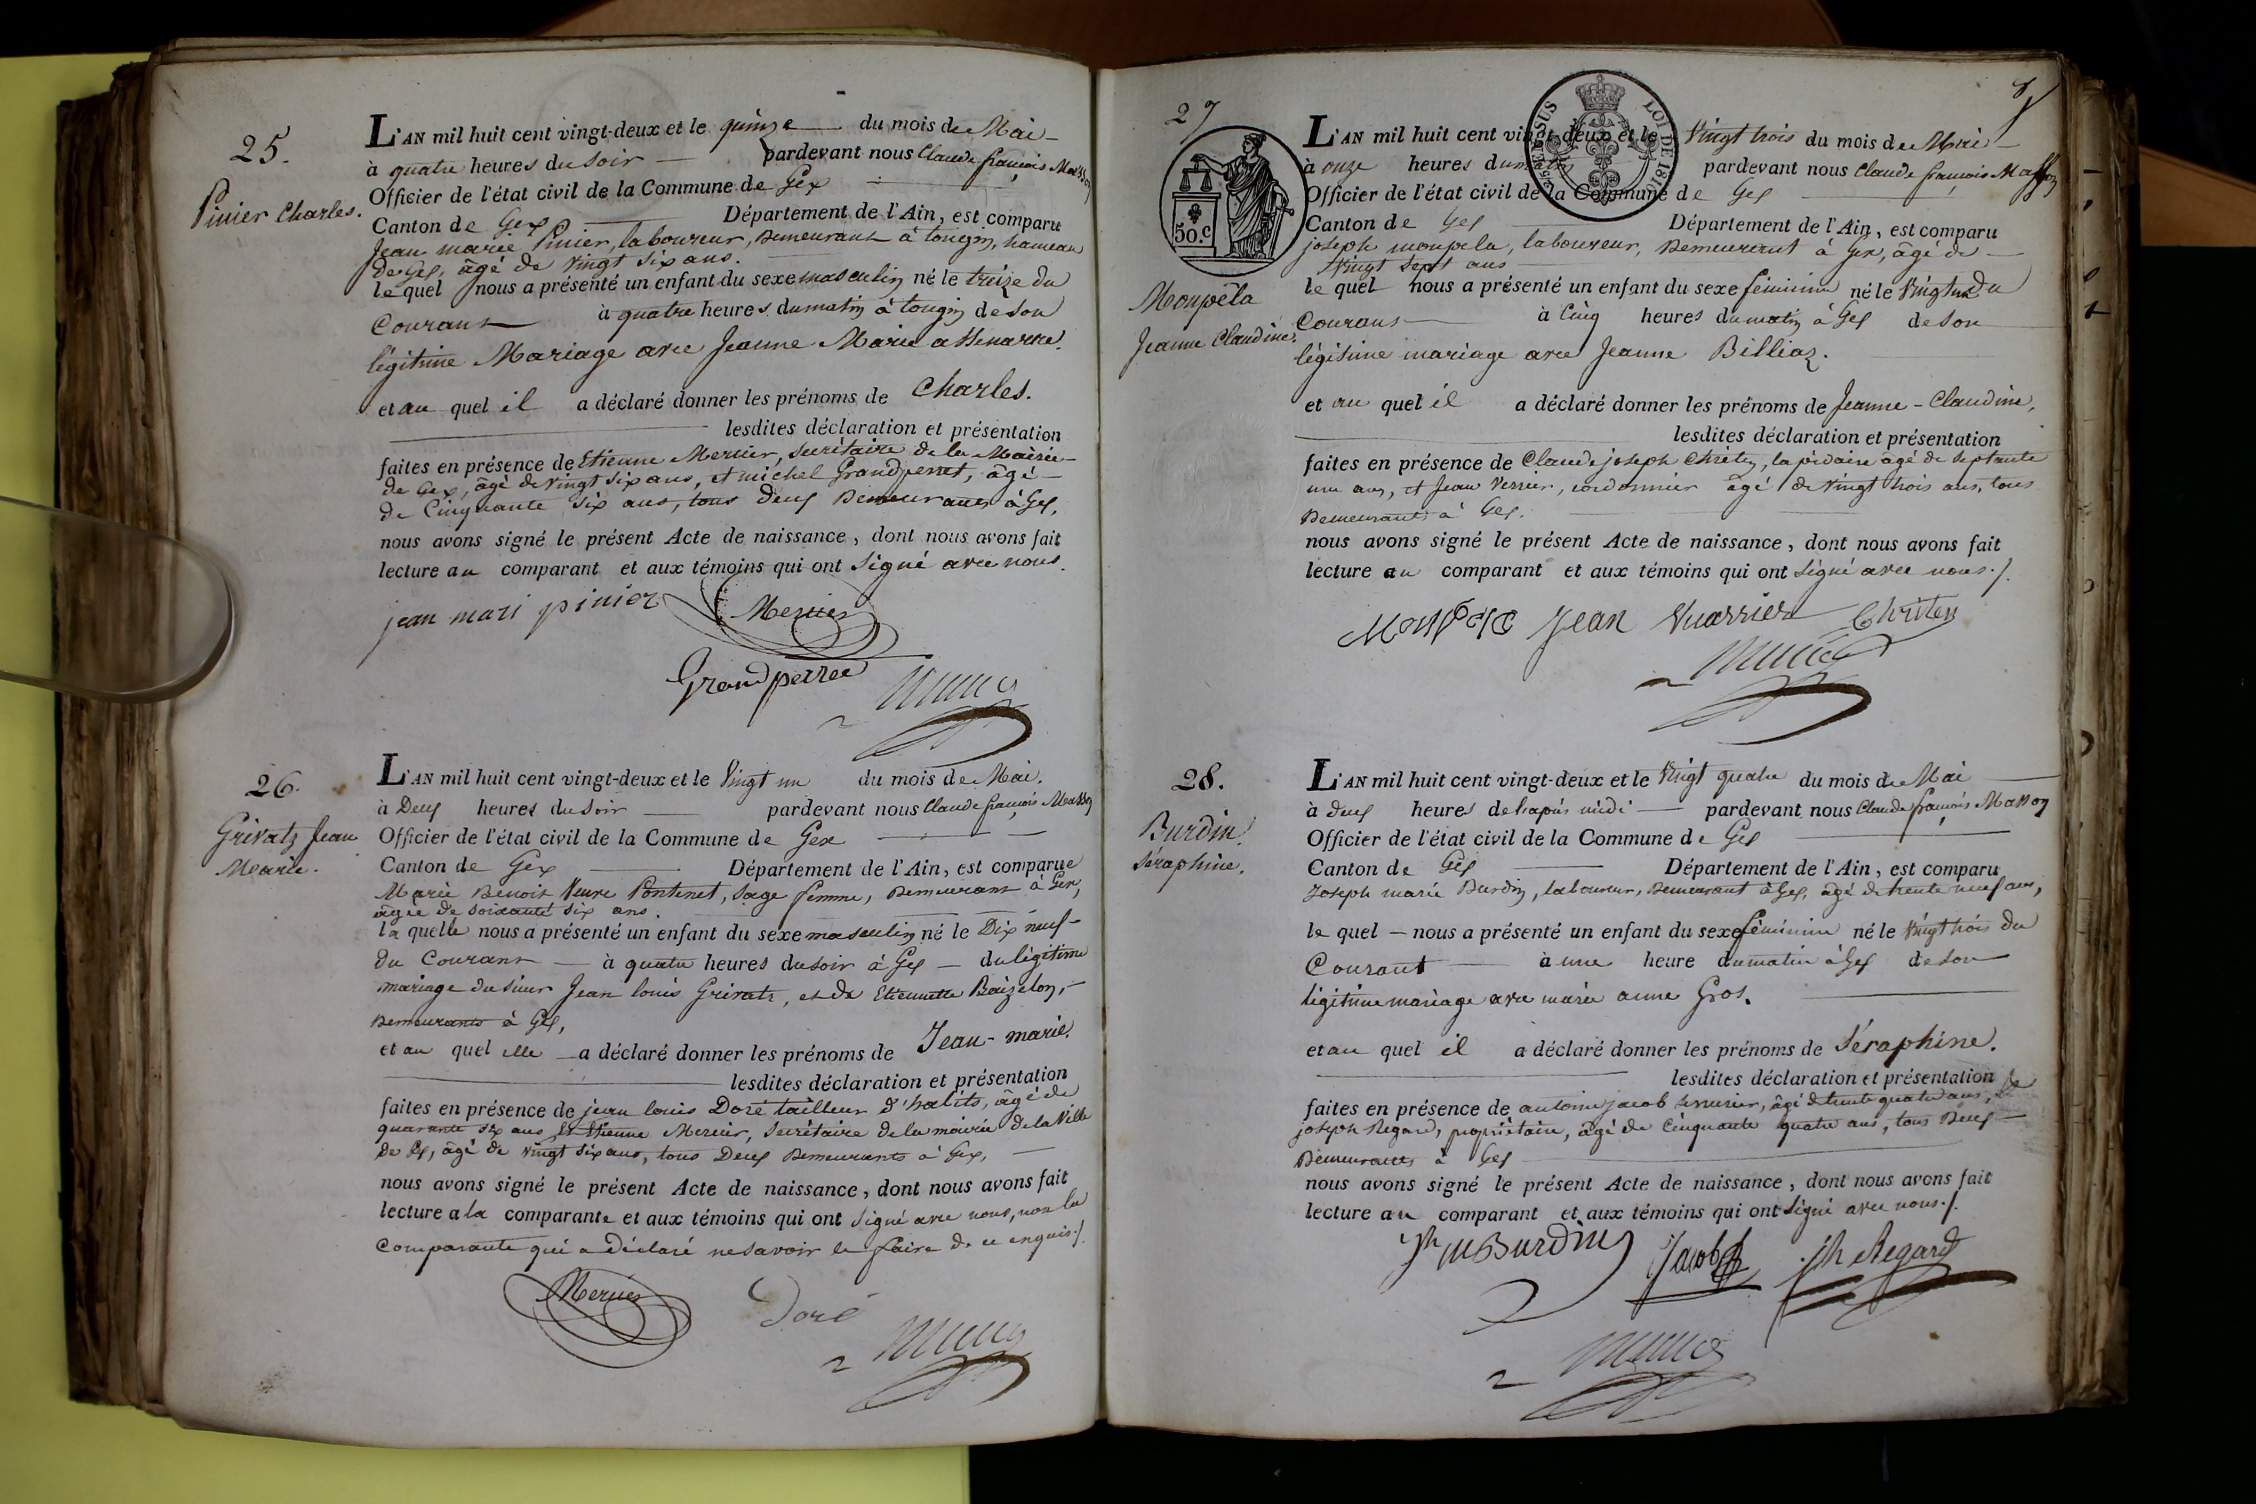 25.
Pinier Charles.
L'AN mil huit cent vingt-deux et le quinze du mois de Mai
à quatre heures du soir pardevant nous Claude françois Masson
Officier de l'état civil de la Commune de Gex
Canton de Gex Département de l'Ain, est comparu
Jean marie Pinier, laboureur, Demeurant à tougin, hameau
de Gex, âgé de vingt six ans.
le quel nous a présenté un enfant du sexe masculin né le treize du
Courant à quatre heures du matin à tougin de son
légitime Mariage avec Jeanne Marie
et au quel il a déclaré donner les prénoms de Charles.
lesdites déclaration et présentation
faites en présence de Etienne Mercier, Secrétaire de la Mairie
de Gex, âgé de vingt six ans, et michel Grandperret, âgé
de Cinquante six ans, tous deux Demeurants à Gex,
nous avons signé le présent Acte de naissance, dont nous avons fait
lecture au comparant et aux témoins qui ont signé avec nous.
jean mari pinier Mercier
Grandperret
26.
Grivatz Jean
Marie.
L'AN mil huit cent vingt-deux et le Vingt un du mois de Mai.
à Deux heures du soir pardevant nous Claude françois Masson
Officier de l'état civil de la Commune de Gex
Canton de Gex Département de l'Ain, est comparue
Marie Benoit Veuve Pontenet, Sage femme, Demeurant à Gex,
âgée de soixante six ans.
la quelle nous a présenté un enfant du sexe masculin né le Dix neuf
du Courant à quatre heures du soir à Gex du légitime
mariage du sieur Jean louis Grivatz, et de Etiennette Baizelon,
Demeurants à Gex,
et au quel elle a déclaré donner les prénoms de Jean-marie.
lesdites déclaration et présentation
faites en présence de jean louis Doré tailleur d'habits, âgé de
quarante six ans, Et Etienne Mercier, Secrétaire de la mairie de la Ville
de Gex, âgé de vingt six ans, tous Deux Demeurants à Gex,
nous avons signé le présent Acte de naissance, dont nous avons fait
lecture a la comparante et aux témoins qui ont signé avec nous, non la
Comparante qui a déclaré ne savoir le faire de ce enquis./.
Mercier Doré
27
Monpela
Jeanne Claudine.
50.C
LOI DE 1816
L'AN mil huit cent vingt-deux et le Vingt trois du mois de Mai
à onze heures du matin pardevant nous Claude françois Masson
Officier de l'état civil de la Commune de Gex
Canton de Gex Département de l'Ain, est comparu
joseph monpela, laboureur, Demeurant à Gex, âgé de
Vingt sept ans
le quel nous a présenté un enfant du sexe féminin né le Vingt un du
Courant à Cinq heures du matin à Gex de son
légitime mariage avec Jeanne Billiaz.
et au quel il a déclaré donner les prénoms de Jeanne-Claudine,
lesdites déclaration et présentation
faites en présence de Claude joseph Chriten, lapidaire âgé de septante
un ans, et Jean Verrier, cordonnier âgé de Vingt trois ans, tous
Demeurants à Gex.
nous avons signé le présent Acte de naissance, dont nous avons fait
lecture au comparant et aux témoins qui ont signé avec nous./.
Monpela Jean Vuarrier Chriten
28.
Burdin
Séraphine.
L'AN mil huit cent vingt-deux et le Vingt quatre du mois de Mai
à deux heures de l'après midi pardevant nous Claude françois Masson
Officier de l'état civil de la Commune de Gex
Canton de Gex Département de l'Ain, est comparu
Joseph marie Burdin, laboureur, Demeurant à Gex, âgé de trente neuf ans,
le quel nous a présenté un enfant du sexe féminin né le Vingt trois du
Courant à une heure du matin à Gex de son
légitime mariage avec marie anne Gros.
et au quel il a déclaré donner les prénoms de Séraphine.
lesdites déclaration et présentation
faites en présence de antoine jacob serrurier, âgé de trente quatre ans, de
joseph Regard, propriétaire, âgé de Cinquante quatre ans, tous Deux
Demeurants à Gex
nous avons signé le présent Acte de naissance, dont nous avons fait
lecture au comparant et aux témoins qui ont signé avec nous./.
Jh M Burdin Jacob jh Regard